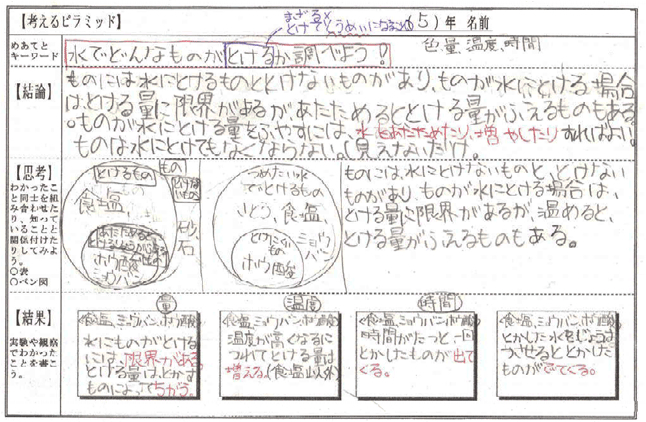 まざる×
とけて(とうめいになること)
【考えるピラミッド】
(5)年 名前
めあてと
キーワード
水でどんなものがとけるか調べよう!
色、量、温度、時間
【結論】
ものには水にとけるものととけないものがあり、ものが水にとける場合
は、とける量に限界があるが、あたためるととける量がふえるものもある
。ものが水にとける量をふやすには、水をあたためたり、増やしたりすればよい。
ものは水にとけてもなくならない。(見えないだけ。
【思考】
わかったこ
と同士を組
み合わせた
り、知って
いることと
関係付けた
りしてみよ
う。
○表
○ベン図
もの
とけるもの
とけないもの
食塩
砂
石
あたためると
ホウ酸
ミョウバン
うめたい水
でとけるもの
さとう、食塩、ミョウバン
とけにくい
もの
ホウ酸
ものには、水にとけないものと、とけない
ものがあり、ものが水にとける場合は、
とける量に限界があるが、温めると、
とける量がふえるものもある。
【結果】
実験や観察
でわかった
ことを書こ
う。
量
(食塩、ミョウバン、ホウ酸)
水にものがとける
には、限界がある
とける量は、とかす
ものによってちがう。
温度
(食塩、ミョウバン、ホウ酸)
温度が高くなるに
つれてとける量は
増える。(食塩以外)
時間
(食塩、ミョウバン、ホウ酸)
時間がたつと一回
とかしたものが出て
くる。
(食塩、ミョウバン、ホウ酸)
とかした水をじょう
はつさせるととかした
ものがでてくる。